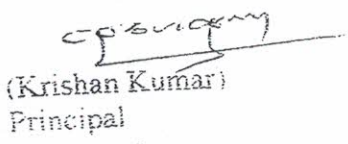 (Krishan Kumar)
Principal